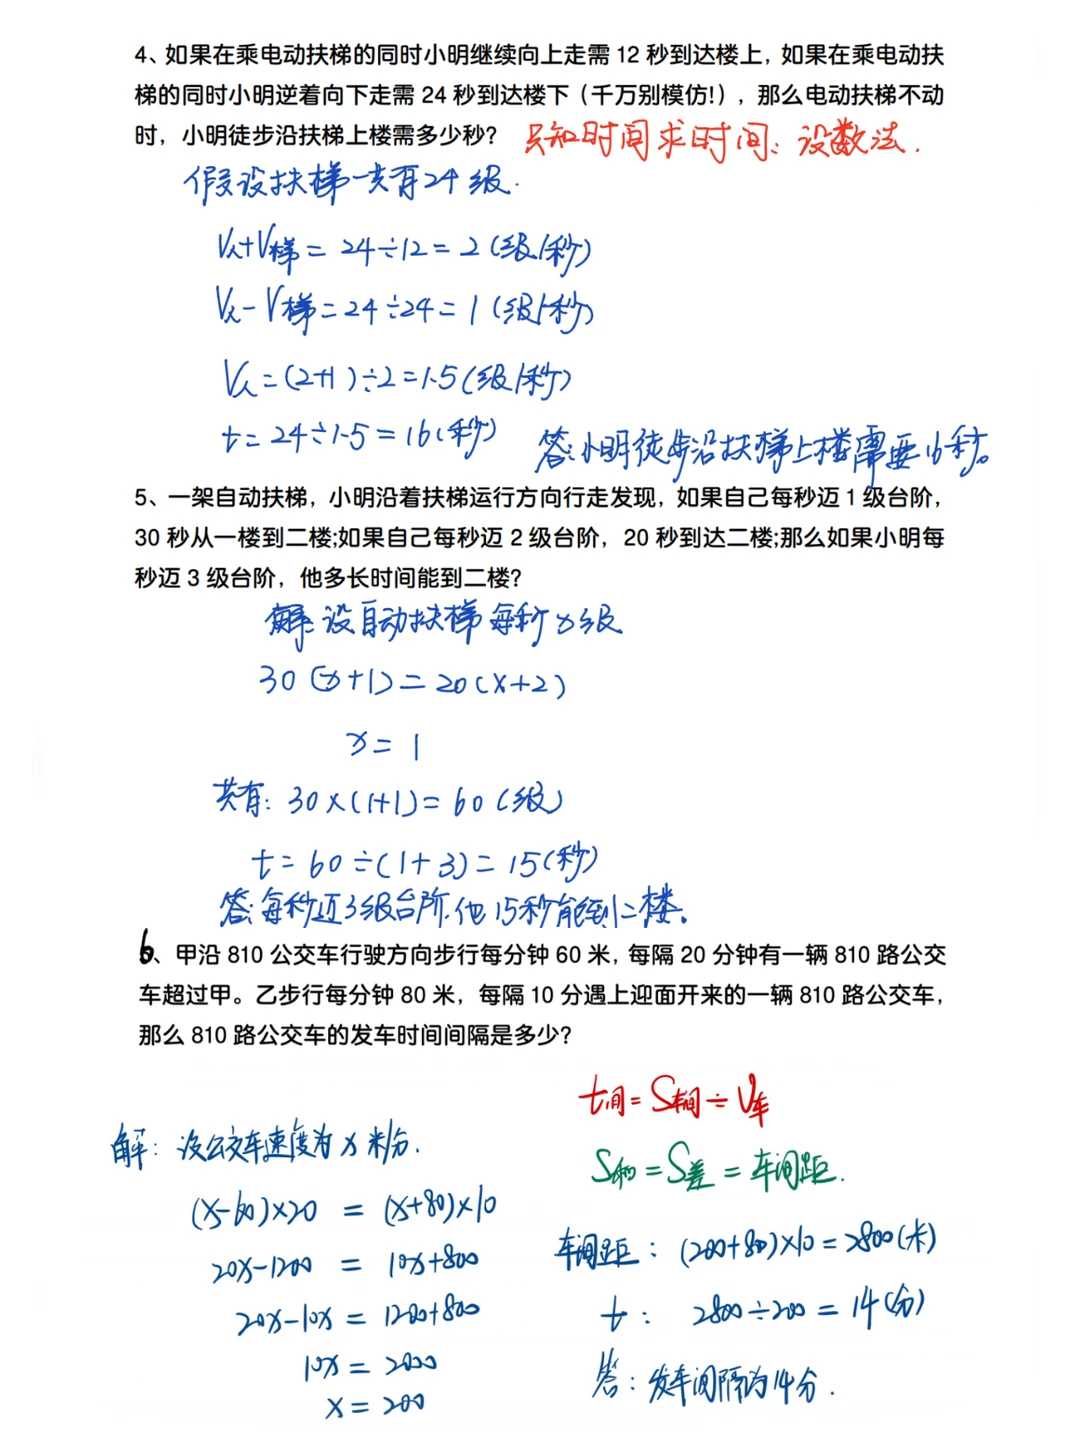 4、如果在乘电动扶梯的同时小明继续向上走需 12 秒到达楼上，如果在乘电动扶
梯的同时小明逆着向下走需 24 秒到达楼下（千万别模仿!），那么电动扶梯不动
时，小明徒步沿扶梯上楼需多少秒？ 只知时间求时间：设数法.
假设扶梯一共有24级.
V人+V梯=24÷12=2(级/秒)
V人-V梯=24÷24=1(级/秒)
V人=(2+1)÷2=1.5(级/秒)
t=24÷1.5=16(秒) 答:小明徒步沿扶梯上楼需要16秒。
5、一架自动扶梯，小明沿着扶梯运行方向行走发现，如果自己每秒迈 1 级台阶，
30 秒从一楼到二楼;如果自己每秒迈 2 级台阶，20 秒到达二楼;那么如果小明每
秒迈 3 级台阶，他多长时间能到二楼？
解:设自动扶梯每秒x级
30(x+1)=20(x+2)
x=1
共有:30×(1+1)=60(级)
t=60÷(1+3)=15(秒)
答:每秒迈3级台阶.他15秒能到二楼。
6、甲沿 810 公交车行驶方向步行每分钟 60 米，每隔 20 分钟有一辆 810 路公交
车超过甲。乙步行每分钟 80 米，每隔 10 分遇上迎面开来的一辆 810 路公交车，
那么 810 路公交车的发车时间间隔是多少？
t间=S车间÷V车
解：设公交车速度为x米/分.
S和=S差=车间距.
(x-60)×20=(x+80)×10
车间距：(200+80)×10=2800(米)
20x-1200=10x+800
20x-10x=1200+800
t：2800÷200=14(分)
10x=2000
x=200
答：发车间隔为14分.